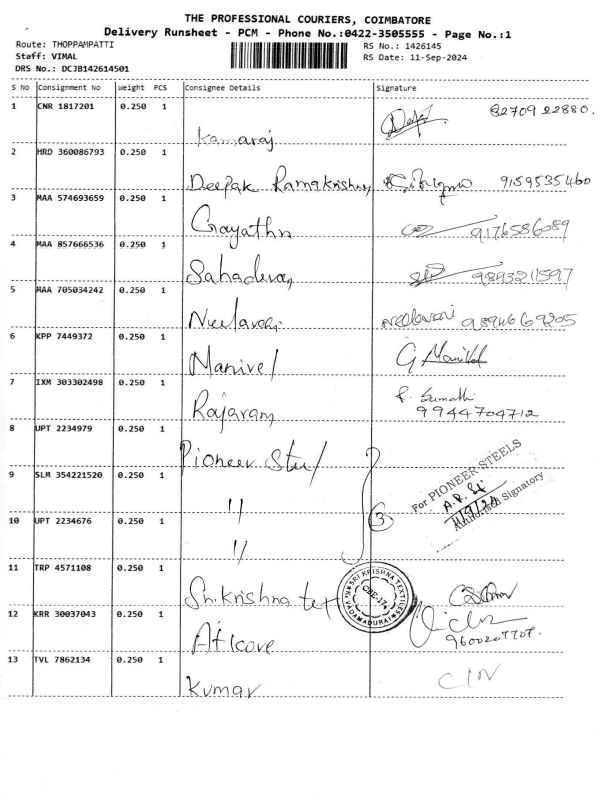 THE PROFESSIONAL COURIERS, COIMBATORE
Delivery Runsheet - PCM - Phone No.:0422-3505555 - Page No.:1
Route: THOPPAMPATTI
RS No.: 1426145
Staff: VIMAL
RS Date: 11-Sep-2024
DRS No.: DCJB142614501
S No Consignment No Weight PCS Consignee Details Signature
1 CNR 1817201 0.250 1 Kamaraj
2 HRD 360086793 0.250 1 Deepak Ramakrishnan 9159535460
3 MAA 574693659 0.250 1 Gayathri 9176586089
4 MAA 857666536 0.250 1 Sahadevan
5 MAA 705034242 0.250 1 Neelaveni Neelaveni
6 KPP 7449372 0.250 1 Manivel G Manivel
7 IXM 303302498 0.250 1 Rajaram P. Sumathi
9944704712
8 UPT 2234979 0.250 1 Pioneer Steel
For PIONEER STEELS
11/9/24
Authorised Signatory
9 SLM 354221520 0.250 1 "
3
10 UPT 2234676 0.250 1 "
11 TRP 4571108 0.250 1 Shri krishna tex
SRI KRISHNA TEXTILES
VADAMADURAI
CBE-17
12 KRR 30037043 0.250 1
9600207707.
13 TVL 7862134 0.250 1 Kumar